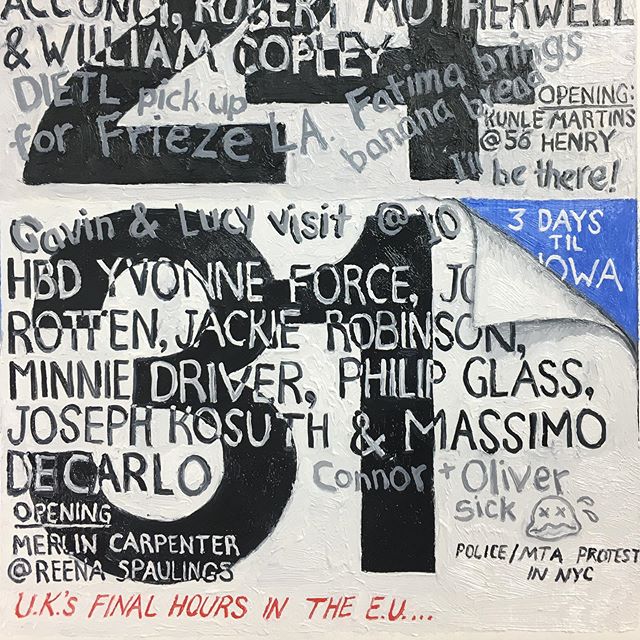 ACCONCI, ROBERT MOTHERWELL
& WILLIAM COPLEY
24
DIETL pick up
for Frieze LA. Fatima brings
banana bread
OPENING:
KUNLE MARTINS
@ 56 HENRY
I'll be there!
Gavin & Lucy visit @ 10
3 DAYS
TIL
IOWA
31
HBD YVONNE FORCE,
ROTTEN, JACKIE ROBINSON,
MINNIE DRIVER, PHILIP GLASS,
JOSEPH KOSUTH & MASSIMO
DECARLO
Connor + Oliver
sick
OPENING
MERLIN CARPENTER
@ REENA SPAULINGS
POLICE/MTA PROTEST
IN NYC
U.K.'S FINAL HOURS IN THE E.U....